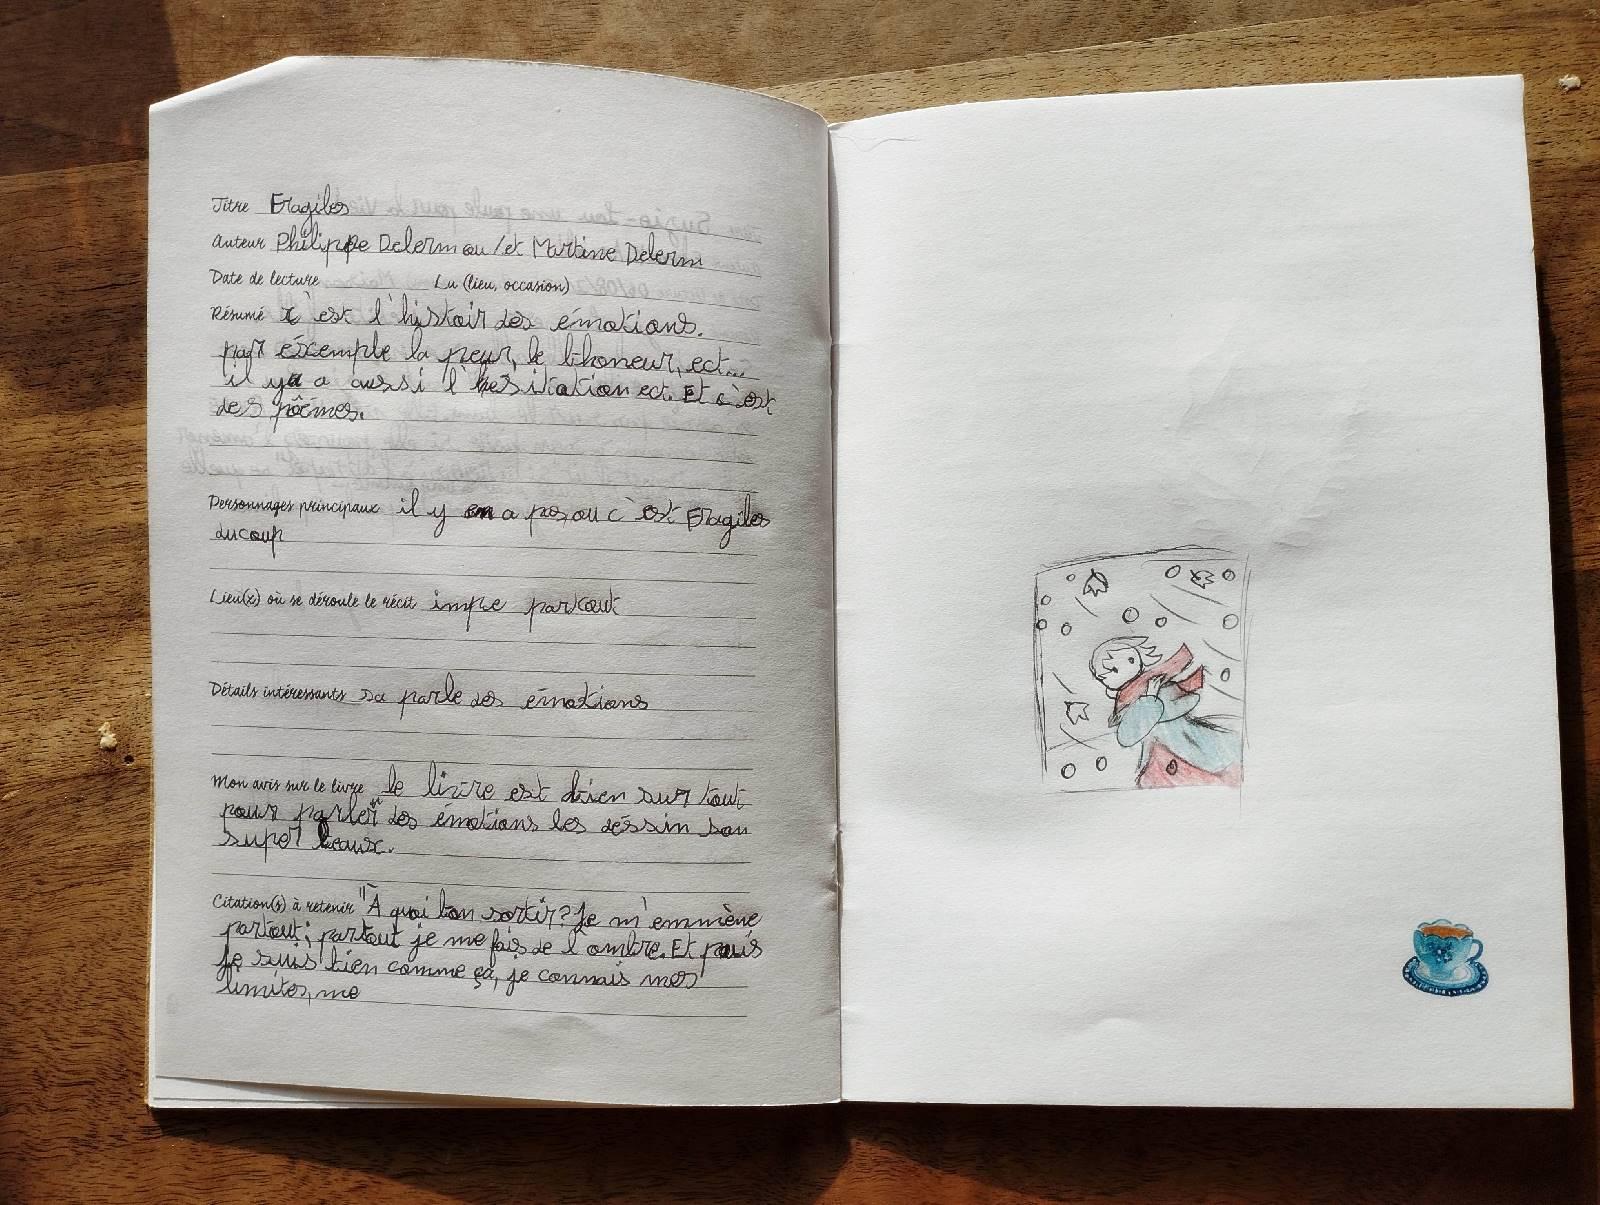 Titre Fragiles
Auteur Philippe Delerm ou/et Martine Delerm
Date de lecture Lu (lieu, occasion)
Résumé c'est l'histoir des émotions.
par éxemple la peur, le bhoneur, ect...
il y a aussi l'hesitation ect. Et c'est
des pôèmes.
Personnages principaux il y en a pas, ou c'est Fragiles
ducoup
Lieu(x) où se déroule le récit impe partout
Détails intéressants sa parle des émotions
Mon avis sur le livre le livre est bien surtout
pour parler des émotions les déssin son
super beaux.
Citation(s) à retenir "À quoi bon sortir? Je m'emmène
partout; partout je me fais de l'ombre. Et puis
je suis bien comme ça, je connais mes
limites, me